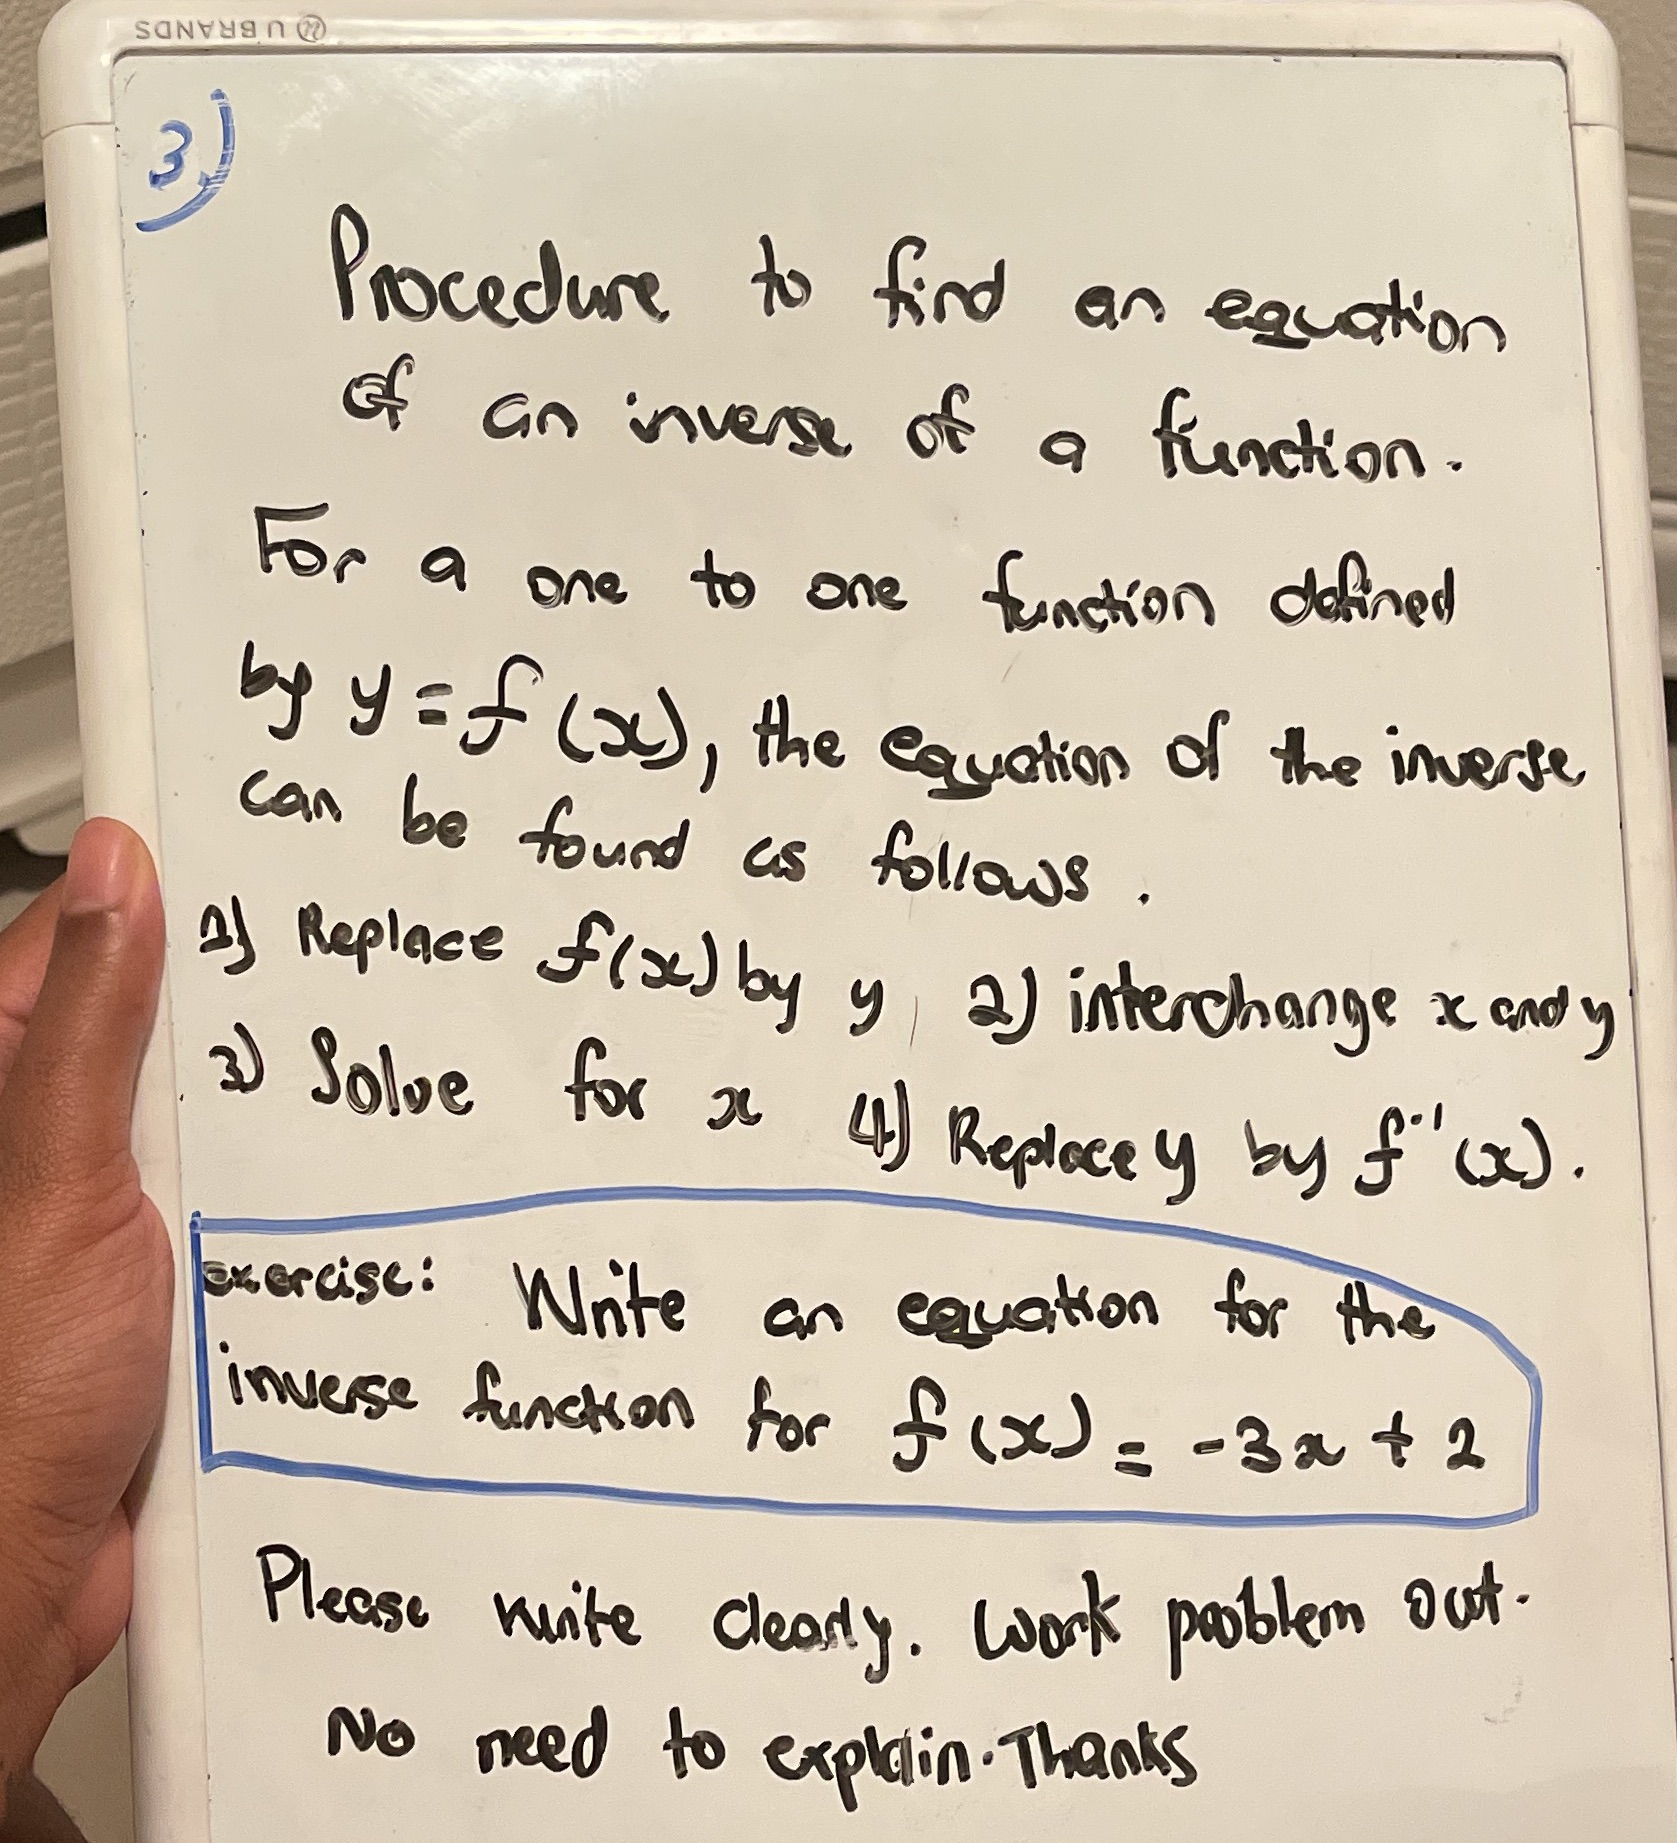 U BRANDS
3)
Procedure to find an equation
of an inverse of a function.
For a one to one function defined
by y = f(x), the equation of the inverse
can be found as follows.
1) Replace f(x) by y, 2) interchange x and y
3) Solve for x 4) Replace y by f⁻¹(x).
exercise: Write an equation for the
inverse function for f(x) = -3x + 2
Please write clearly. Work problem out.
No need to explain. Thanks